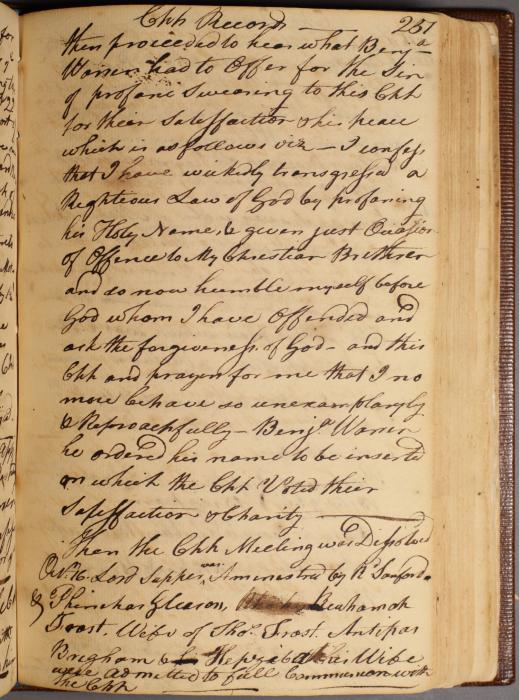 Chh Records 251
then proceeded to hear what Benja
Warren had to Offer for the Sin
of profane Swearing to this Chh
for their Satesffaction & his peace
which is as follows viz — I confess
that I have wickedly transgressed a
Righteous Law of God by profaning
his Holy Name, & given just Ocasion
of Offence to My Christian Brethren
and do now humble myself before
God whom I have Offended and
ask the forgiveness of God - and this
Chh and prayers for me that I no
more behave so unexamplaryly
& Reproachfully — Benja Warren
he ordered his name to be inserted
on which the Chh Voted their
Satesffaction & Charity
Then the Chh Meeting was Dissolved
Lord Supper, was Aministred by
& Phinehas Gleason, Beuhamah
Frost, Wife of Tho. Frost. Antipas
Brigham & Hepzibah his Wife
were admitted to full Communion with
the Chh